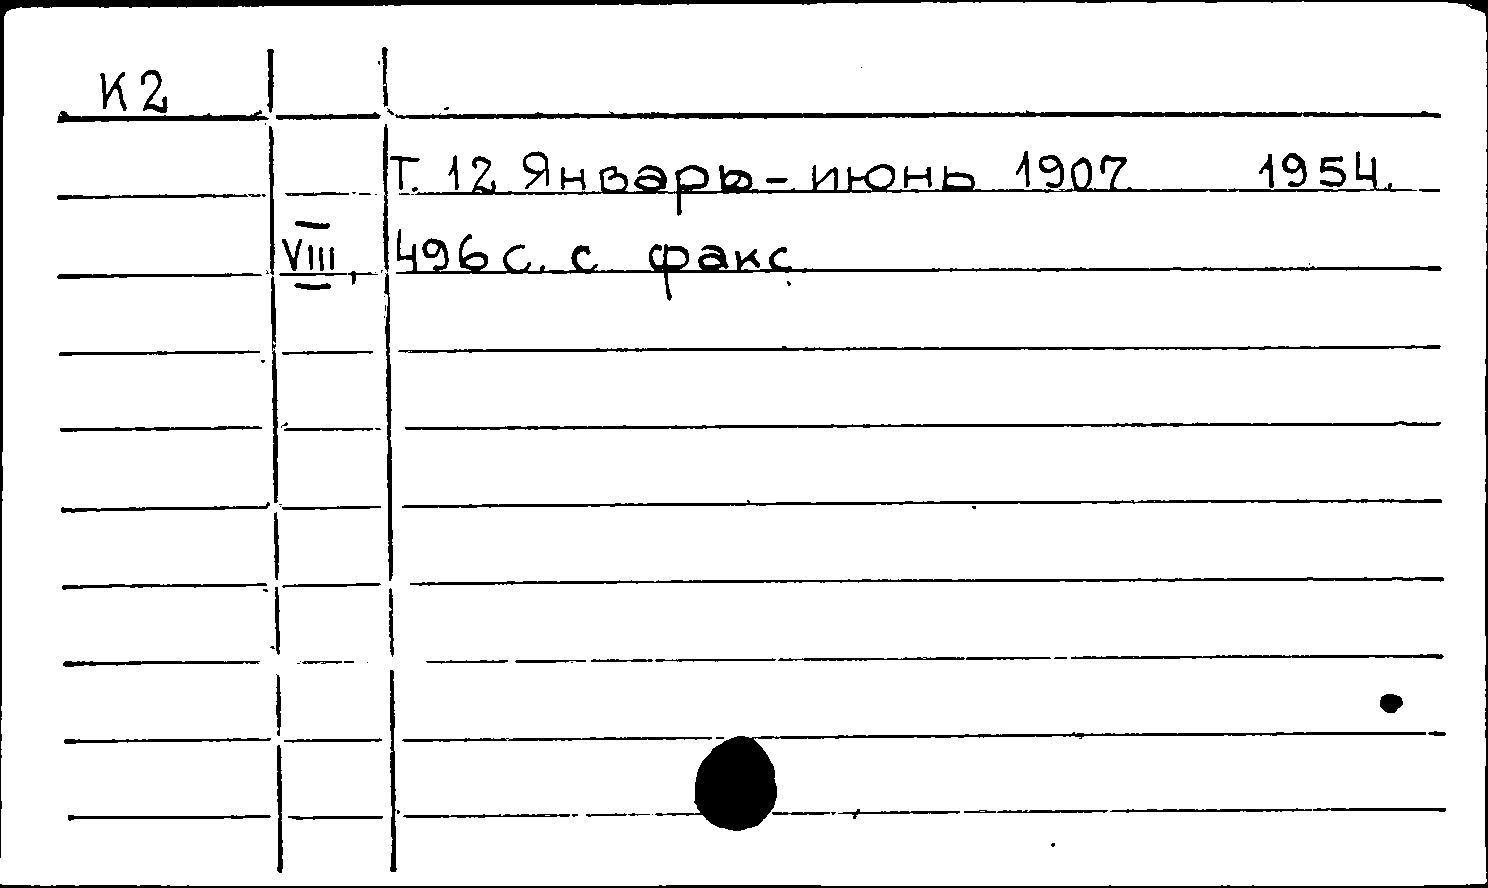 К2
Т. 12 Январь - июнь 1907 1954.
VIII, 496 с. с факс.